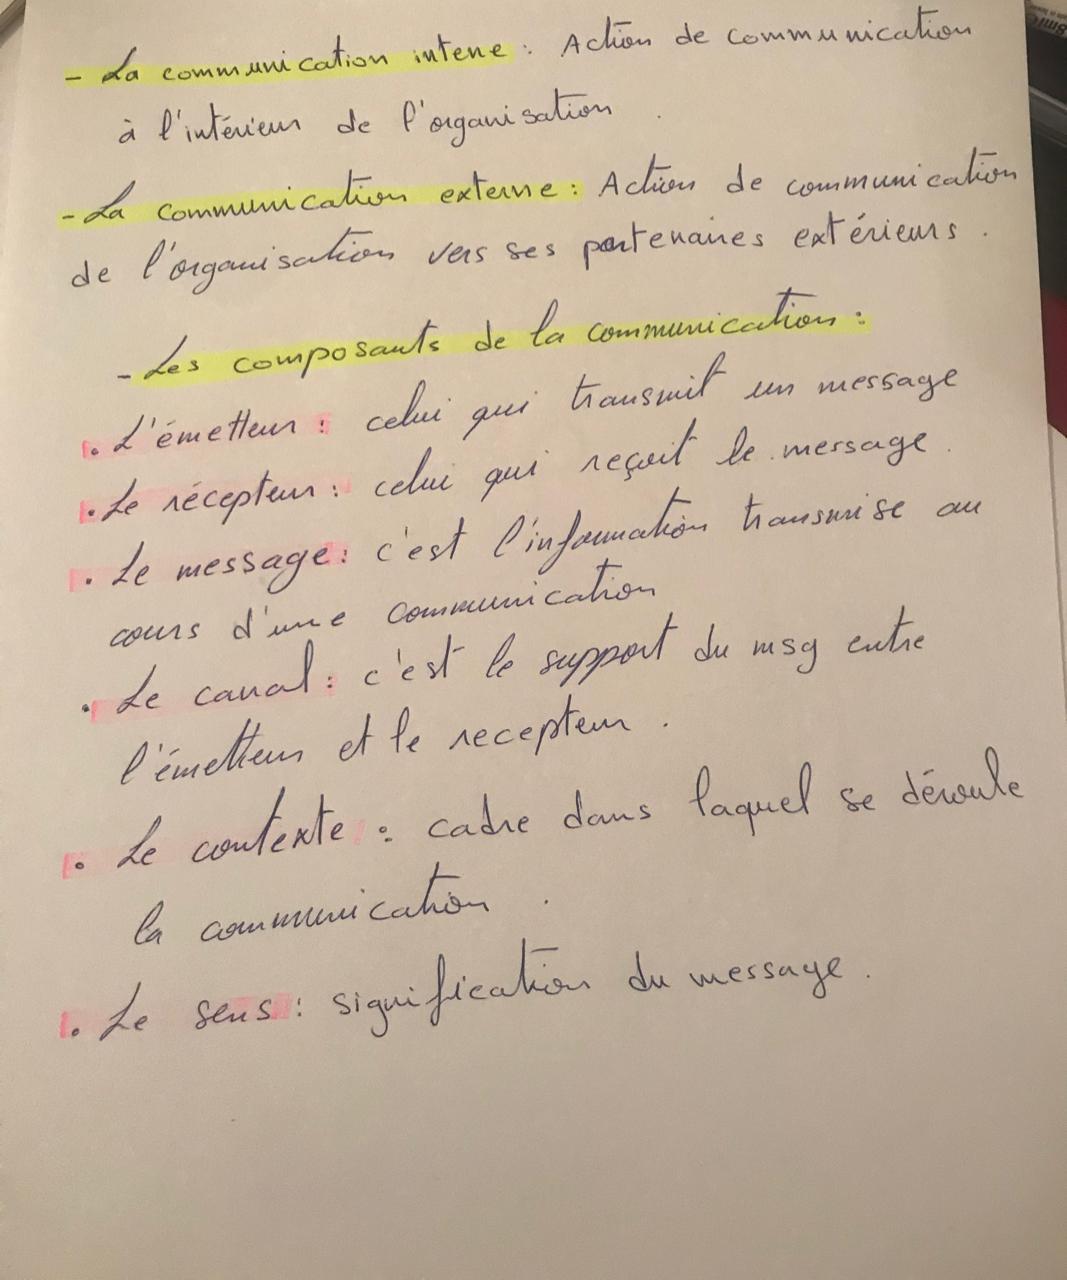 - La communication intene : Action de communication
à l'intérieur de l'organisation .
- La communication externe : Action de communication
de l'organisation vers ses partenaires extérieurs .
- Les composants de la communication :
. L'émetteur : celui qui transmit un message
. Le récepteur : celui qui reçoit le message .
. Le message : c'est l'information transmise au
cours d'une communication
. Le canal : c'est le support du msg entre
l'émetteur et le recepteur .
. Le contexte : cadre dans laquel se déroule
la communication .
. Le sens : signification du message .